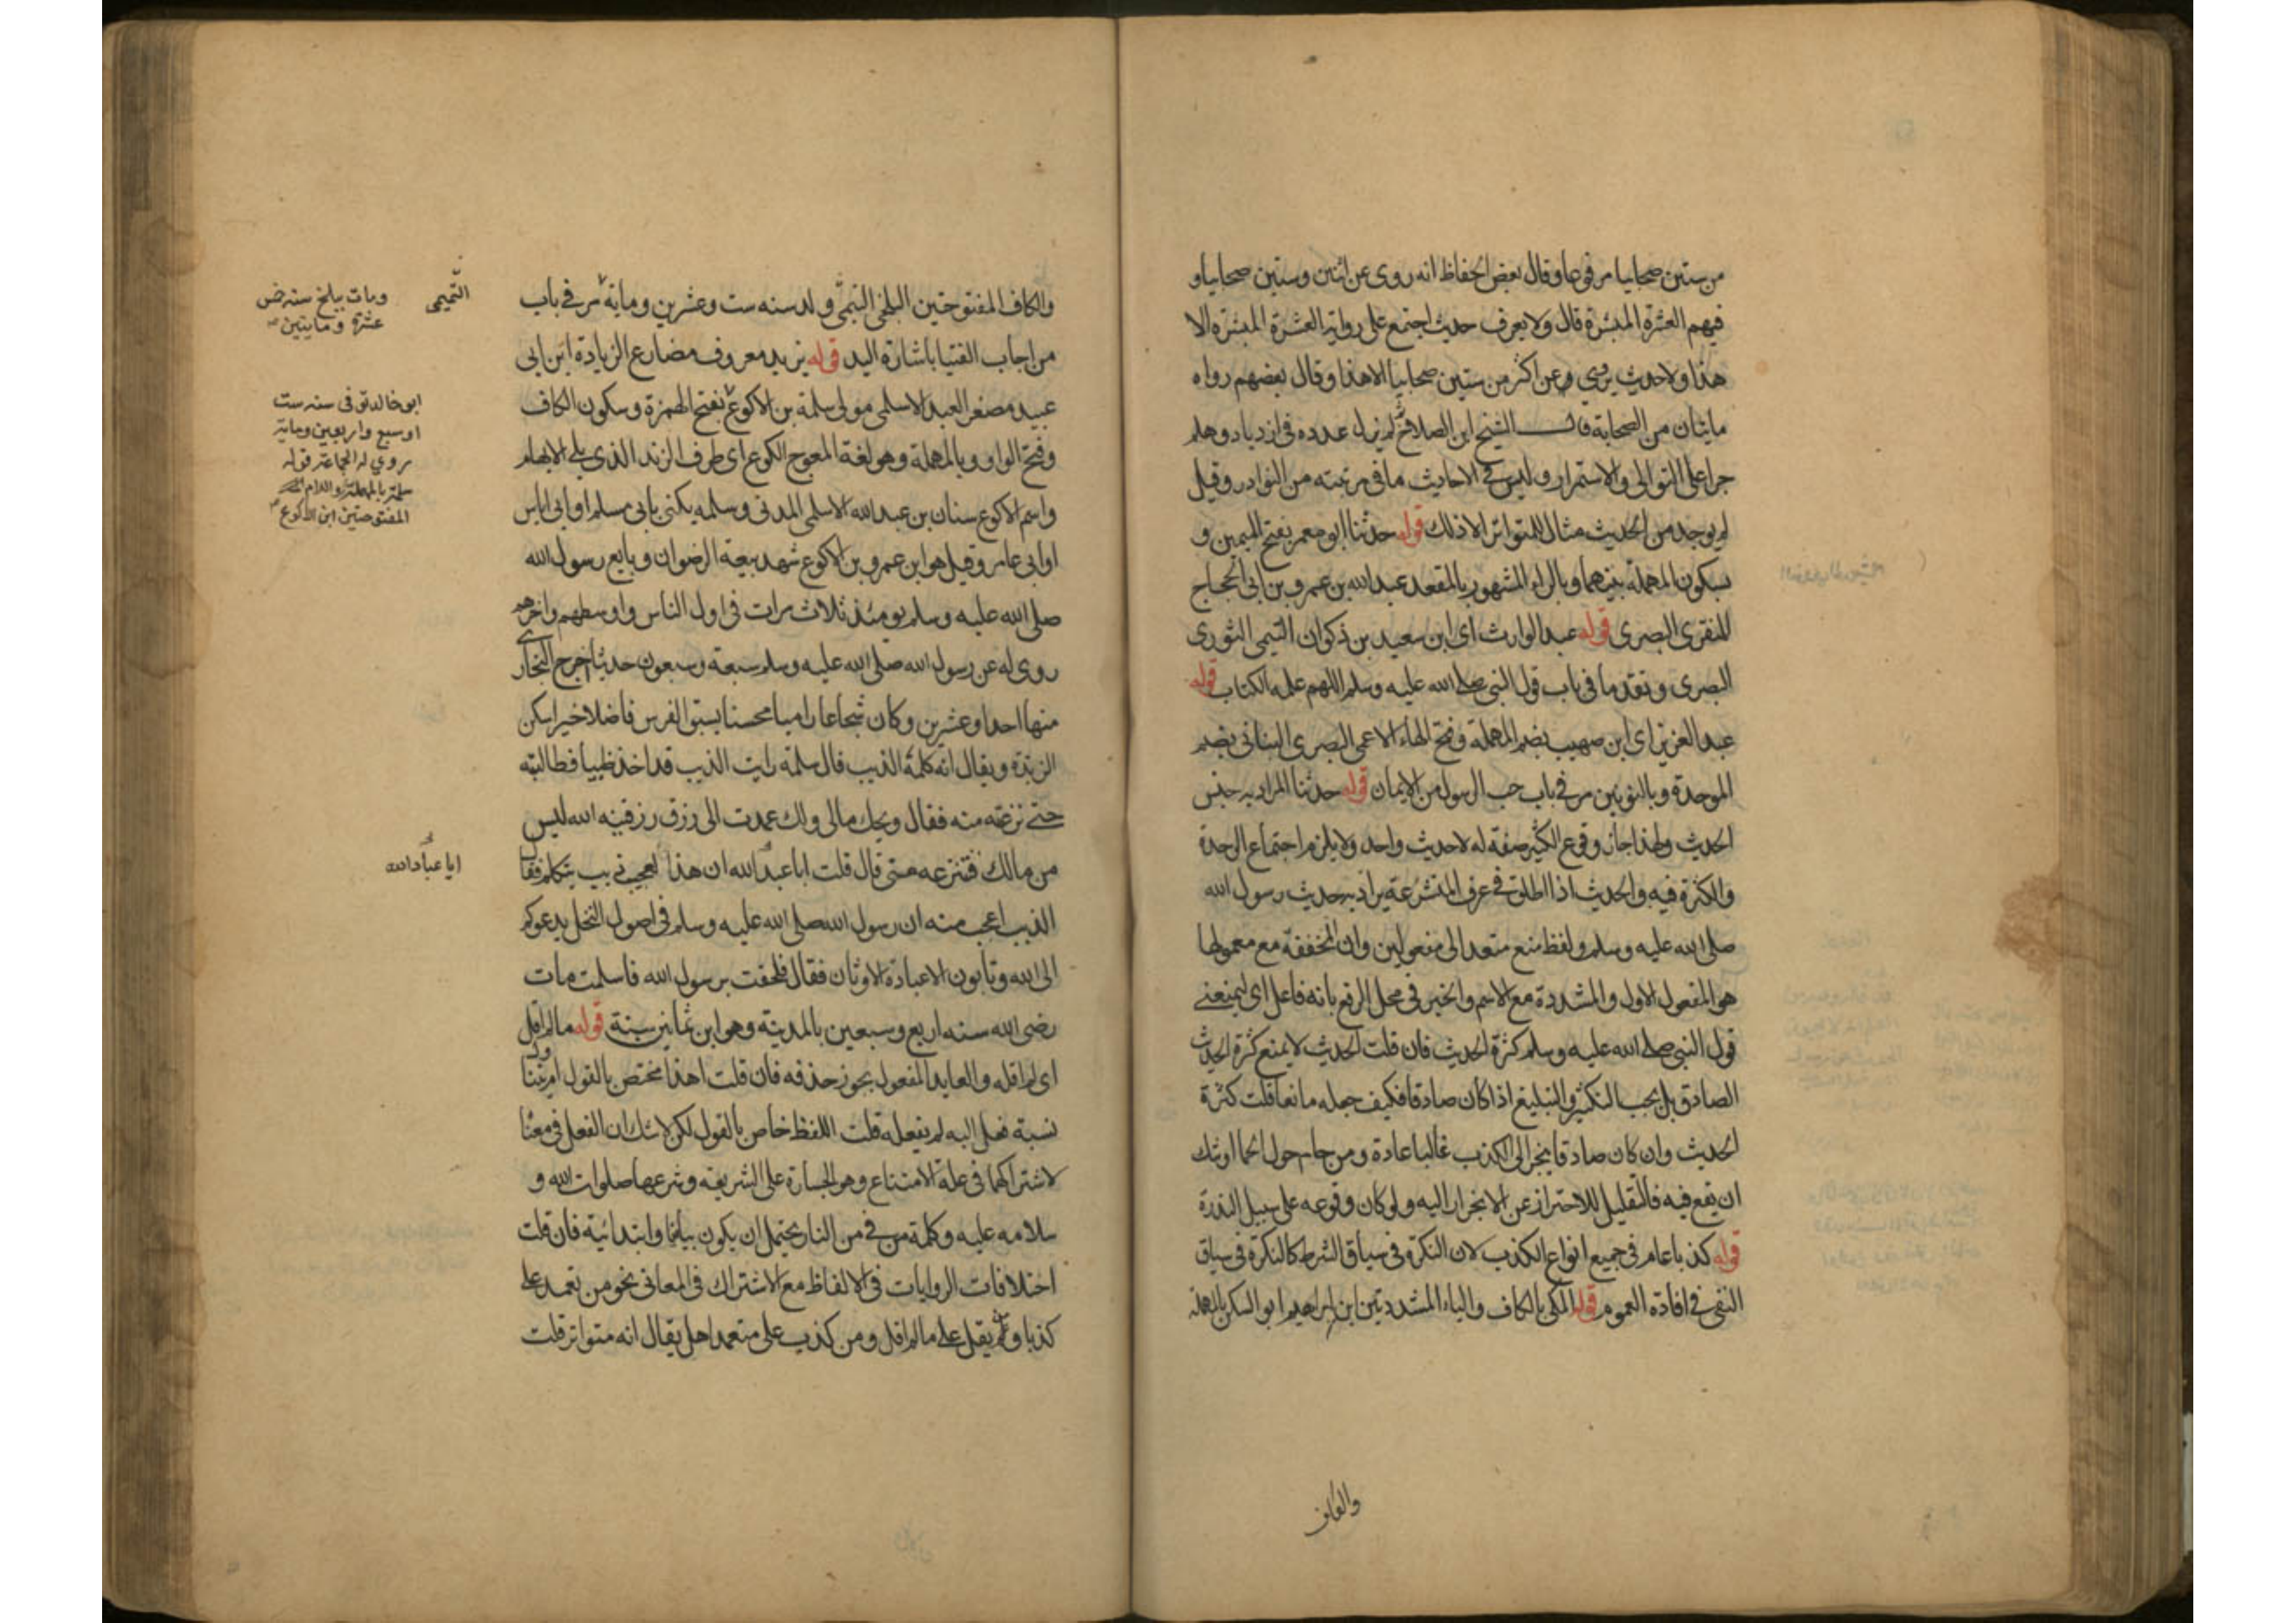 من ستين صحابيا مرفوعا وقال بعض الحفاظ انه روى عن اثنين وستين صحابيا و
فيهم العشرة المبشرة قال ولا يعرف حديث اجتمع على روايته العشرة المبشرة الا
هذا ولا حديث يروى عن اكثر من ستين صحابيا الا هذا وقال بعضهم رواه
مايتان من الصحابة قال الشيخ ابن الصلاح ثم لم يزل عدده في ازدياد وهلم
جرا على التوالي والاستمرار وليس في الاحاديث ما في مرتبته من التواتر وقيل
لم يوجد من الحديث مثال للمتواتر الا ذلك قوله حدثنا ابو معمر بفتح الميمين و
سكون المهملة بينهما وبالراء المشهور بالمقعد عبد الله بن عمرو بن ابى الحجاج
المنقرى البصرى قوله عبد الوارث اى ابن سعيد بن ذكوان التيمى التنورى
البصرى وتقدما في باب قول النبي صلى الله عليه وسلم اللهم علمه الكتاب قوله
عبد العزيز اى ابن صهيب بضم المهملة وفتح الهاء الاعمى البصرى البنانى بضم
الموحدة وبالنونين مر في باب حب الرسول من الايمان قوله حدثنا المراد به جنس
الحديث ولهذا جاز وقوع الكثير صفة له لا حديث واحد ولا يلزم اجتماع الوحدة
والكثرة فيه والحديث اذا اطلق في عرف المتشرعة يراد به حديث رسول الله
صلى الله عليه وسلم ولفظ منع متعد الى مفعولين وان المخففة مع معمولها
هو المفعول الاول والمشددة مع الاسم والخبر في محل الرفع بانه فاعل اى ليمنعنى
قول النبي صلى الله عليه وسلم كثرة الحديث فان قلت الحديث لا يمنع كثرة الحديث
الصادق بل يجب التكثير والتبليغ اذا كان صادقا فكيف جعله مانعا قلت كثرة
الحديث وان كان صادقا ينجر الى الكذب غالبا عادة ومن حام حول الحما اوشك
ان يقع فيه فالتقليل للاحتراز عن الانجرار اليه ولو كان وقوعه على سبيل الندرة
قوله كذبا عام في جميع انواع الكذب لان النكرة في سياق الشرط كالنكرة في سياق
النفي في افادة العموم قوله المكى بالكاف والياء المشددتين ابن ابراهيم ابو السكن بالمهملة
والكاف
والكاف المفتوحتين البلخى التيمى ولد سنه ست وعشرين ومايه مر في باب
من اجاب الفتيا باشارة اليد قوله يزيد معروف مضارع الزيادة ابن ابى
عبيد مصغر العبد الاسلمى مولى سلمة بن الاكوع بفتح الهمزة وسكون الكاف
وفتح الواو وبالمهملة وهو لغة المعوج الكوع اى طرف الزند الذى يلى الابهام
واسم الاكوع سنان بن عبد الله الاسلمى المدنى وسلمه يكنى بابى مسلم او ابى اياس
او ابى عامر وقيل هو ابن عمرو بن الاكوع شهد بيعة الرضوان وبايع رسول الله
صلى الله عليه وسلم يومئذ ثلاث مرات في اول الناس واوسطهم واخرهم
روى له عن رسول الله صلى الله عليه وسلم سبعة وسبعون حديثا اخرج البخارى
منها احدا وعشرين وكان شجاعا راميا محسنا يسبق الفرس فاضلا خيرا سكن
الربذة ويقال انه كلمه الذيب قال سلمة رايت الذيب قد اخذ ظبيا فطالبته
حتى نزعته منه فقال ويحك مالى ولك عمدت الى رزق رزقنيه الله ليس
من مالك فتنزعه منى قال قلت ايا عبد الله ان هذا لعجب ذيب يتكلم فقال
الذيب اعجب منه ان رسول الله صلى الله عليه وسلم في اصول النخل يدعوكم
الى الله وتابون الا عبادة الاوثان فقال فلحقت برسول الله فاسلمت مات
رضى الله سنه اربع وسبعين بالمدينة وهو ابن ثمانين سنة قوله ما لم اقل
اى لم اقله والعايد المفعول يجوز حذفه فان قلت اهذا مختص بالقول ام
نسبة فعل اليه لم يفعله قلت اللفظ خاص بالقول لكن لا شك ان الفعل في معناه
لاشتراكهما في علة الامتناع وهو الجسارة على الشريعة وشرعها صلوات الله و
سلامه عليه وكلمة من في من النار يحتمل ان يكون بيانية وابتدائية فان قلت
اختلافات الروايات في الالفاظ مع الاشتراك في المعانى نحو من تعمد على
كذبا ومن يقل على ما لم اقل ومن كذب على متعمدا هل يقال انه متواتر قلت
التميمى
ومات ببلخ سنه خمس
عشرة ومايتين
ابو خالد توفى سنه ست
او سبع واربعين ومايه
روى له الجماعة قوله
سلمة بالمهملة واللام
المفتوحتين ابن الاكوع
ايا عباد الله